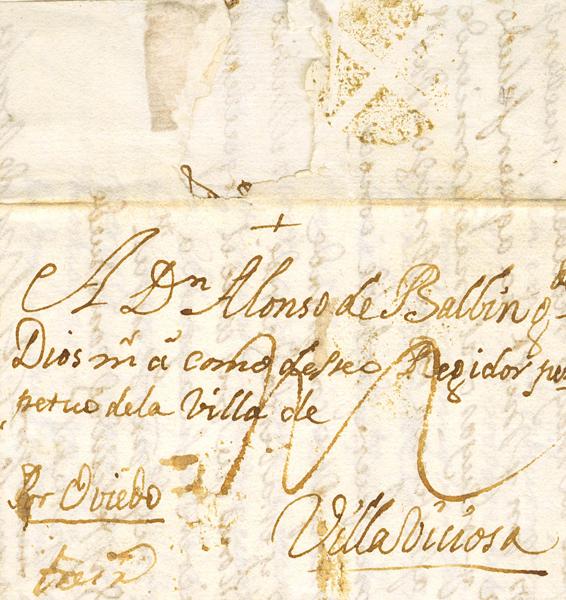 +
A Dn Alonso de Balbin q de
Dios m a como deseo Regidor per
petuo dela Villa de
Por Oviedo
Villaviciosa